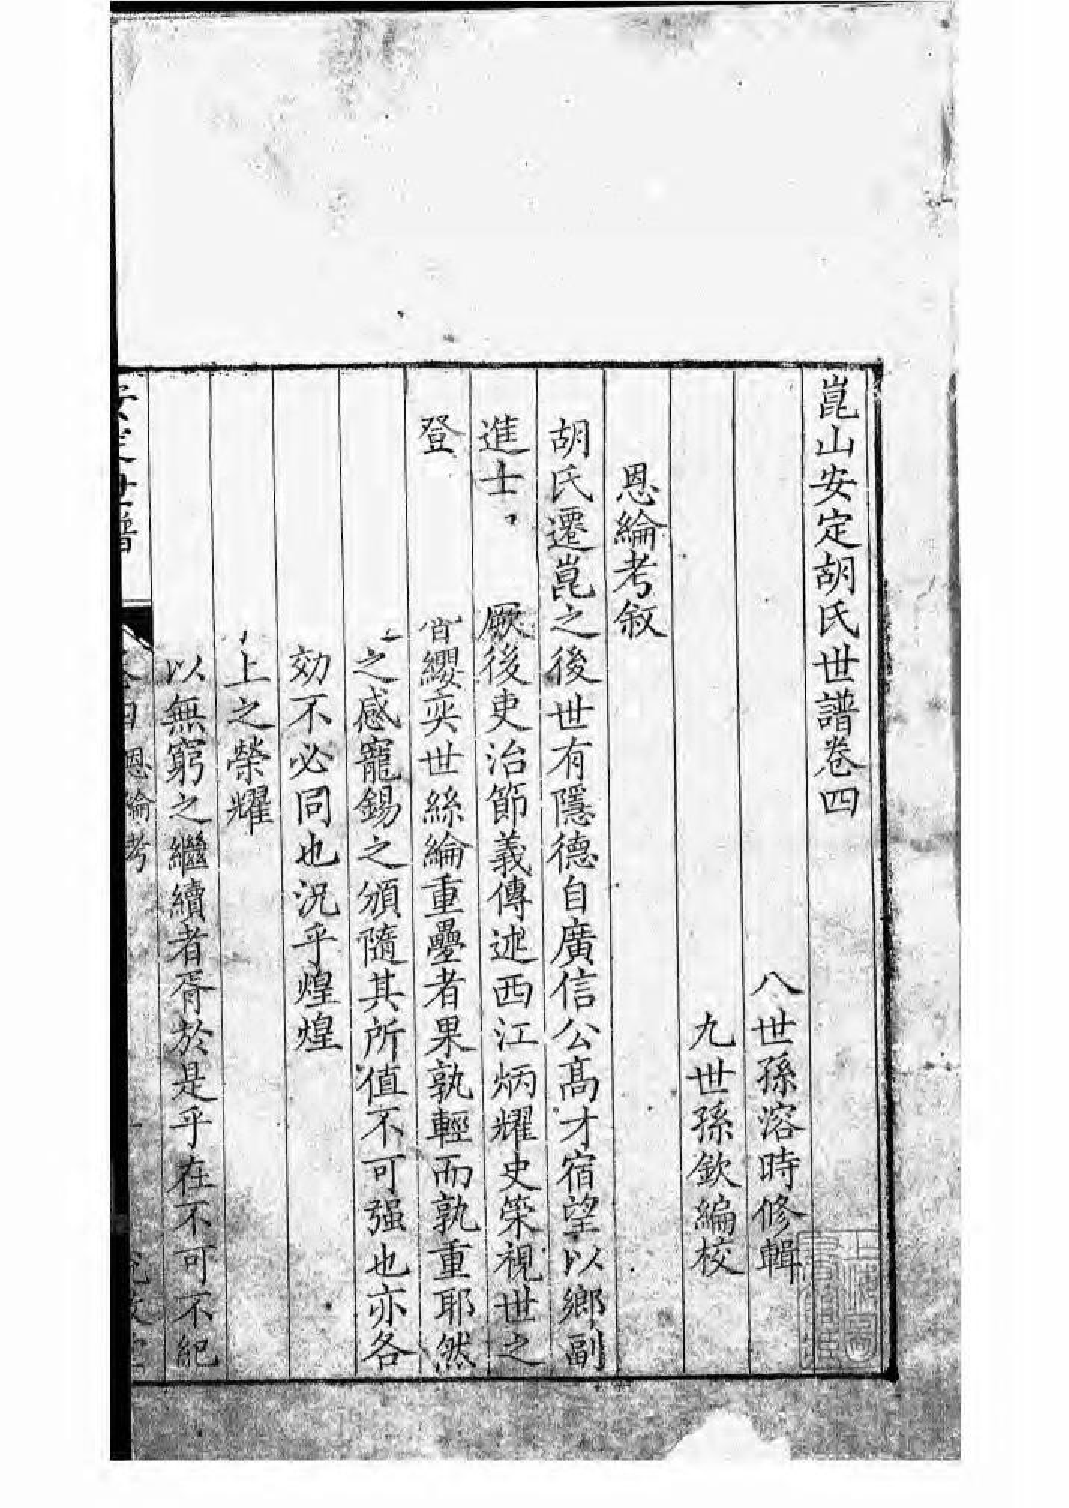 崑山安定胡氏世譜卷四
八世孫溶時修輯
九世孫欽編校
恩綸考敘
胡氏遷崑之後世有隱德自廣信公高才宿望以鄉副
進士 厥後吏治節義傳述西江炳耀史策視世之
登 纓奕世絲綸重疊者果孰輕而孰重耶然
之感寵錫之頒隨其所值不可强也亦各
効不必同也況乎煌煌
上之榮耀
以無窮之繼續者胥於是乎在不可不紀
安定世譜 卷四 恩綸考